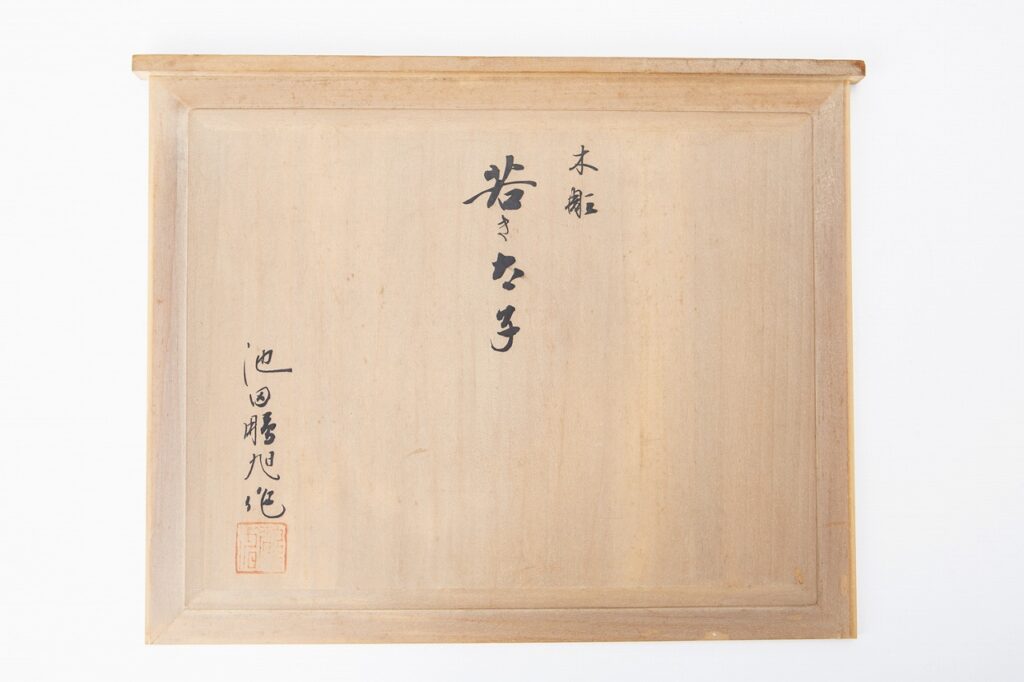 木彫
若き太子
池田鵬旭作